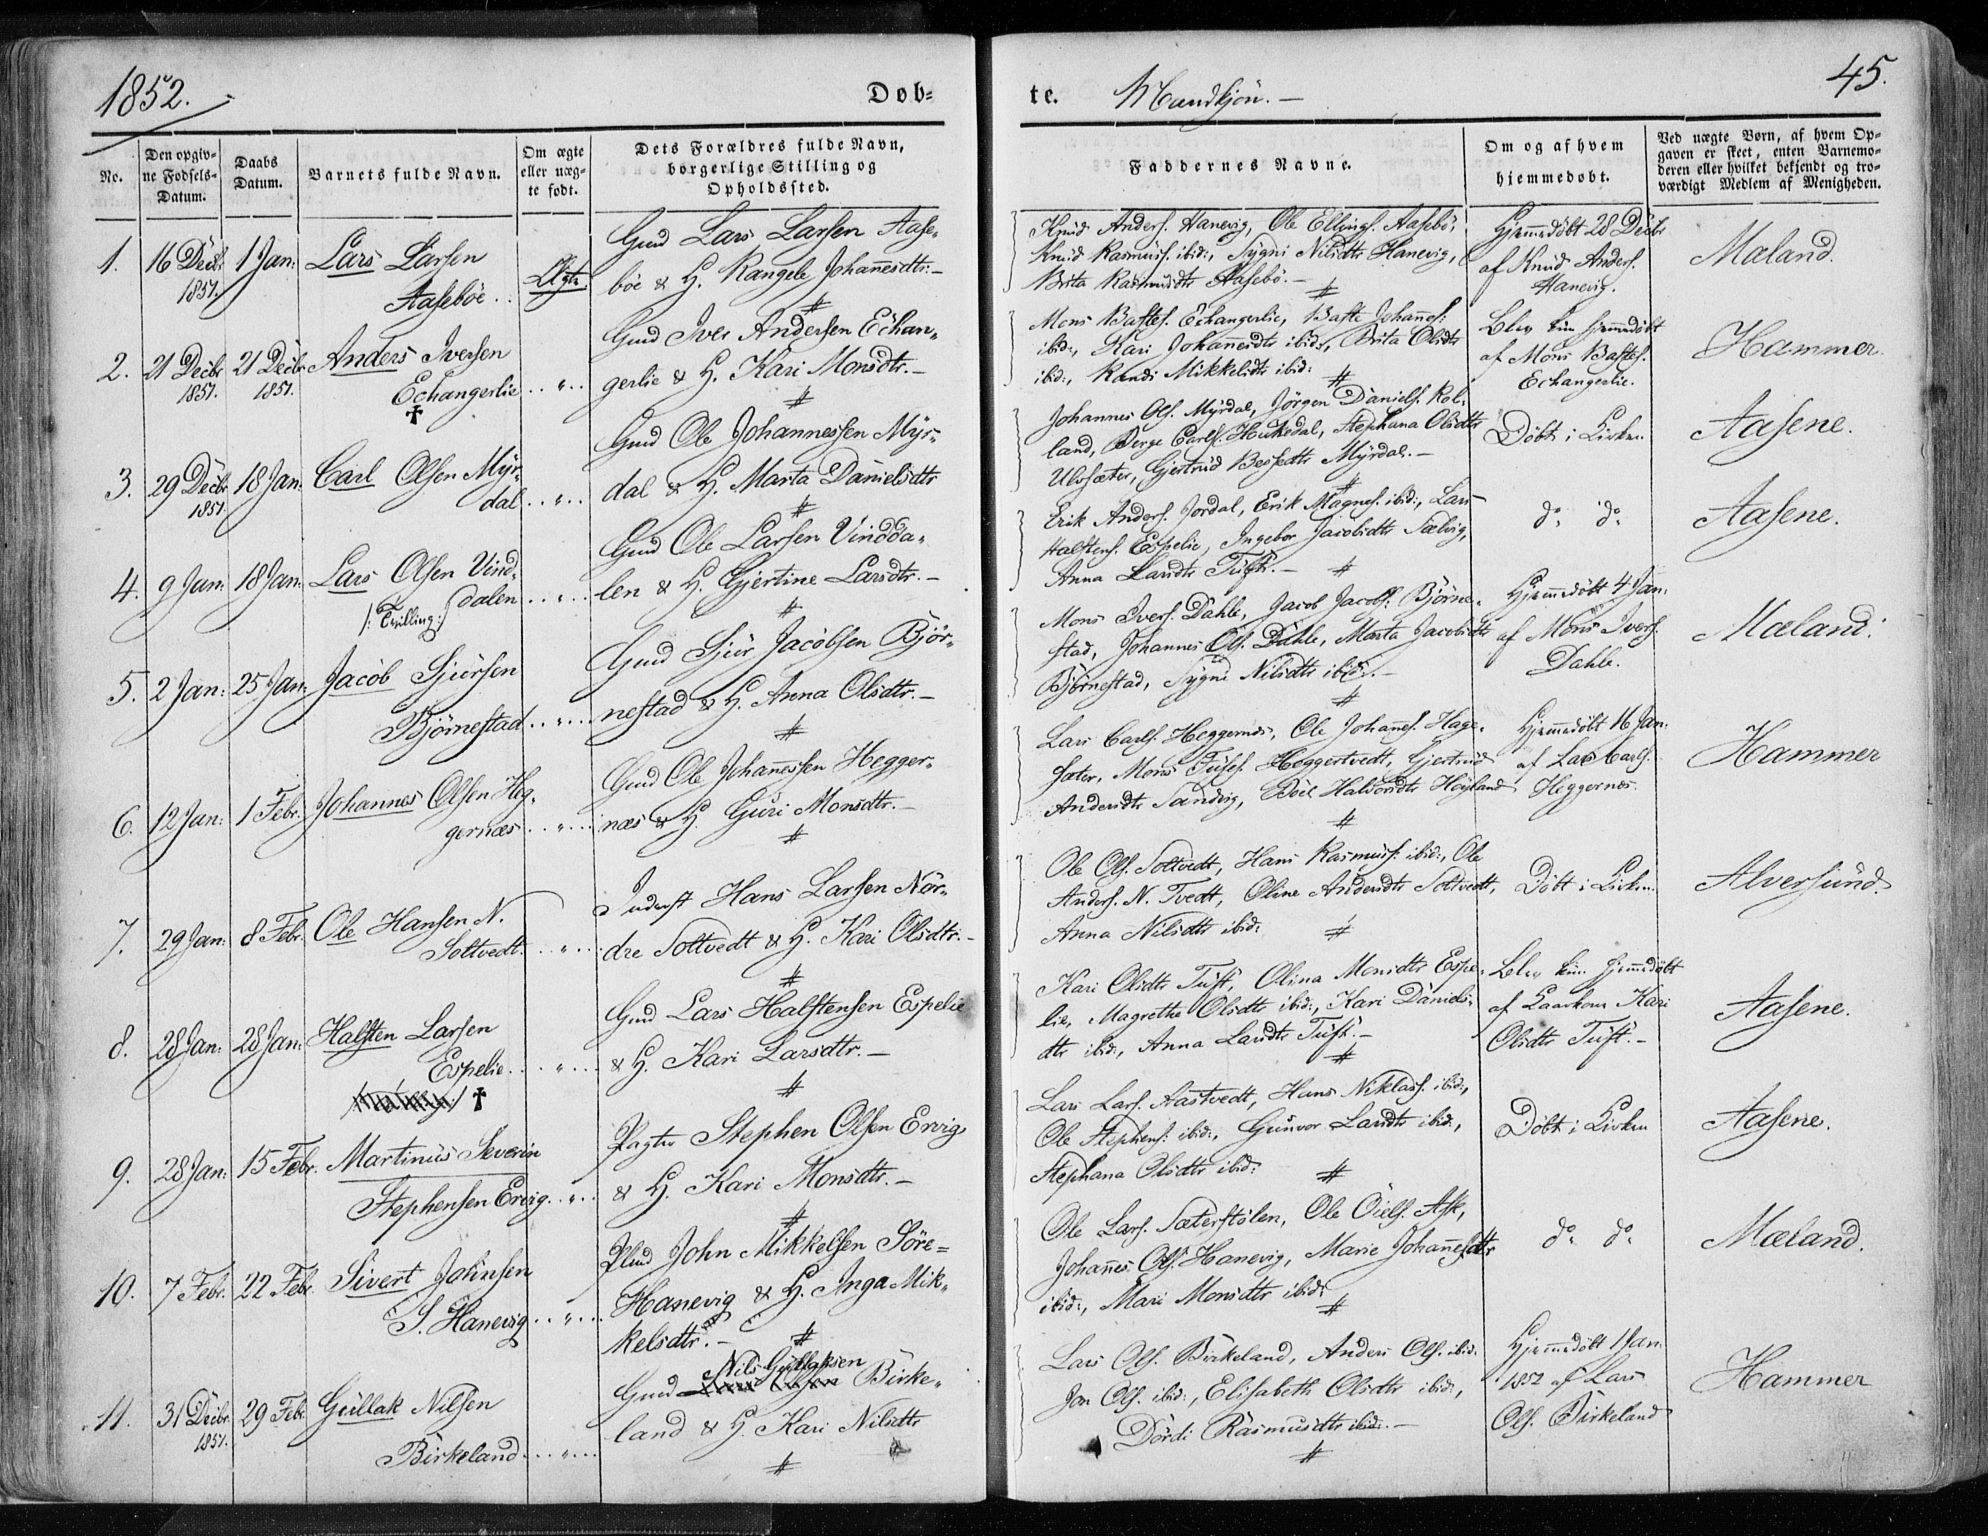 1852.
Døb-
te.
Mandkjøn.
45.
No.
Den opgiv-
ne Fødsels-
Datum.
Daabs
Datum.
Barnets fulde Navn.
Om ægte
eller uæg-
te født.
Dets Forældres fulde Navn,
borgerlige Stilling og
Opholdssted.
Faddernes Navne.
Om og af hvem
hjemmedøbt.
Ved uægte Børn, af hvem Op-
gaven er skeet, enten Barnemo-
deren eller hvilket bekjendt og tro-
værdigt Medlem af Menigheden.
1. 16 Decbr 1 Jan: Lars Larsen
1851. Aasebøe.. Ægte
Gmd Lars Larsen Aase-
bøe & H. Rangele Johannesdtr.
Knud Anders. Hanevig, Ole Ellings. Aasebø,
Knud Rasmus. ibid:, Sygni Nilsdtr Hanevig,
Brita Rasmusdtr Aasebø.
Hjemmedøbt 28 Decbr
af Knud Anders.
Hanevig.
Mæland.
2. 21 Decbr 21 Decbr Anders Iversen
1851. 1851. Echangerlie .. " ..
†
Gmd Iver Andersen Echan-
gerlie & H. Kari Monsdtr.
Mons Bastes. Echangerlie, Baste Johannes.
ibid:, Kari Johannesdtr ibid:, Brita Olsdtr
ibid:, Randi Mikkelsdtr ibid:
Blev kun hjemmedøbt
af Mons Bastes.
Echangerlie.
Hammer.
3. 29 Decbr 18 Jan: Carl Olsen Myr-
1851. dal .. " ..
Gmd Ole Johannessen Myr-
dal & H. Marta Danielsdtr
Johannes Ols. Myrdal, Jörgen Daniels. Rol-
land, Børge Carls. Haukedal, Stephana Olsdtr
Ulvsæter, Gjertrud Bessedtr Myrdal.
Døbt i Kirken
Aasene.
4. 9 Jan: 18 Jan: Lars Olsen Vind-
dalen .. " ..
/: Tvilling :/
Gmd Ole Larsen Vindda-
len & H. Gjertine Larsdtr.
Erik Anders. Jordal, Erik Magnes. ibid:, Lars
Halstens. Espelie, Ingebor Jacobsdtr Sælvig,
Anna Larsdtr Tuft.
do do
Aasene.
5. 2 Jan: 25 Jan: Jacob Sjursen
Björnestad .. " ..
Gmd Sjur Jacobsen Bjør-
nestad & H. Anna Olsdtr.
Mons Ivers. Dahle, Jacob Jacobs. Björne-
stad, Johannes Ols. Dahle, Marta Jacobsdtr
Björnestad, Sygni Nilsdtr ibid:.
Hjemmedøbt 4 Jan:
af Mons Ivers.
Dahle.
Mæland.
6. 12 Jan: 1 Febr. Johannes Olsen Heg-
gernæs .. " ..
Gmd Ole Johannessen Hegger-
næs & H. Guri Monsdtr.
Lars Carls. Heggernæs, Ole Johannes. Hage-
sæter, Mons Heggertvedt, Gjertrud
Andersdtr Sandvig, Boel Halvorsdtr Høyland
Hjemmedøbt 16 Jan:
af Lars Carls.
Heggernæs.
Hammer
7. 29 Jan: 8 Febr. Ole Hansen N.
Soltvedt. .. " ..
Inderst Hans Larsen Nor-
dre Soltvedt & H. Kari Olsdtr.
Ole Ols. Soltvedt, Hans Rasmus. ibid:, Ole
Anders. N. Tvedt, Oline Andersdtr Soltvedt,
Anna Nilsdtr ibid:
Døbt i Kirken
Alversund
8. 28 Jan: 28 Jan: Halsten Larsen
Espelie .. " ..
†
Gmd Lars Halstensen Espelie
& H. Kari Larsdtr.
Kari Olsdtr Tuft, Olina Monsdtr Espe-
lie, Magrethe Olsdtr ibid:, Kari Daniels-
dtr ibid:, Anna Larsdtr Tuft.
Blev kun hjemmedøbt
af Kari
Olsdtr Tuft.
Aasene.
9. 28 Jan: 15 Febr. Martinus Severin
Stephensen Ervig .. " ..
Pagter Stephen Olsen Ervig
& H. Kari Monsdtr.
Lars Lars. Aastvedt, Hans Niklas. ibid:,
Ole Stephens. ibid:, Gunvor Larsdtr ibid:,
Stephana Olsdtr ibid:
Døbt i Kirken
Aasene.
10. 7 Febr. 22 Febr. Sivert Johnsen
S. Hanevig .. " ..
Plmd John Mikkelsen Söre-
Hanevig & H. Inga Mik-
kelsdtr.
Ole Lars. Sæterstølen, Ole Ask,
Johannes Ols. Hanevig, Marie Johannesdtr
ibid:, Mari Monsdtr ibid:
do do
Mæland.
11. 31 Decbr 29 Febr. Gullak Nilsen
1851. Birkeland .. " ..
Nils Gullaksen
Gmd Birke-
land & H. Kari Nilsdtr
Lars Ols. Birkeland, Anders Ols. ibid:
Jon Ols. ibid:, Elisabeth Olsdtr ibid:,
Dördi Rasmusdtr ibid:.
Hjemmedøbt 1 Jan:
1852 af Lars
Ols. Birkeland
Hammer